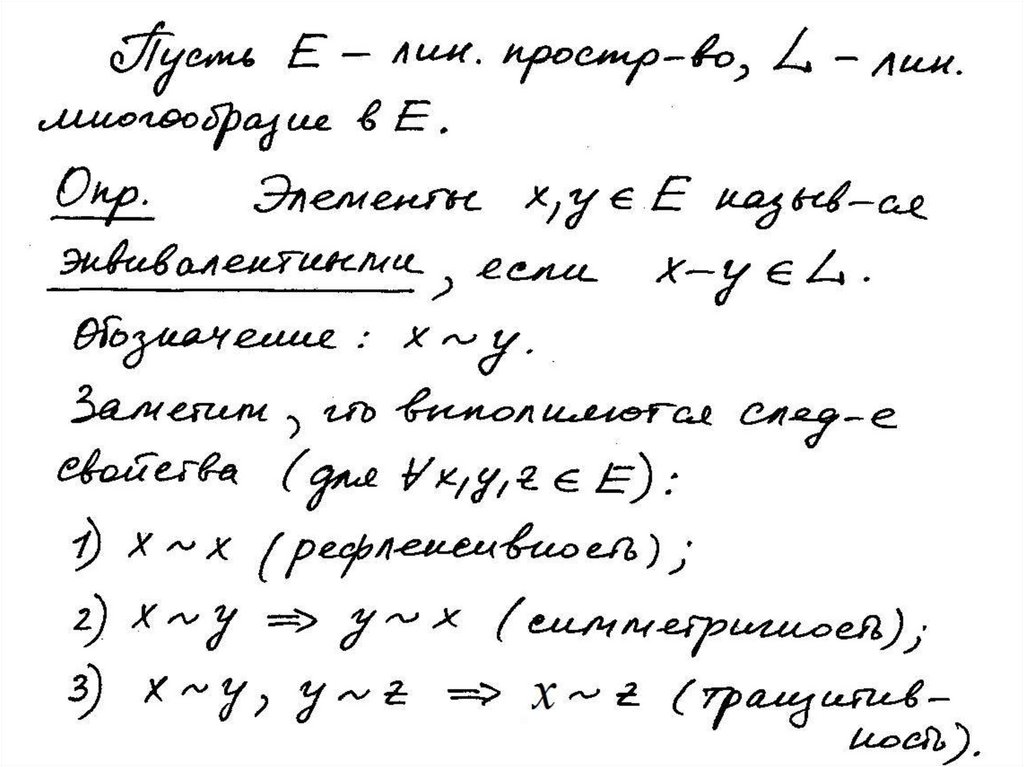 Пусть E – лин. простр-во, L – лин.
многообразие в E.
Опр. Элементы x, y ∈ E назыв-ся
эквивалентными, если x–y ∈ L.
Обозначение: x ~ y.
Заметим, что выполняются след-е
свойства (для ∀ x, y, z ∈ E):
1) x ~ x (рефлексивность);
2) x ~ y ⇒ y ~ x (симметричность);
3) x ~ y, y ~ z ⇒ x ~ z (транзитив-
ность).